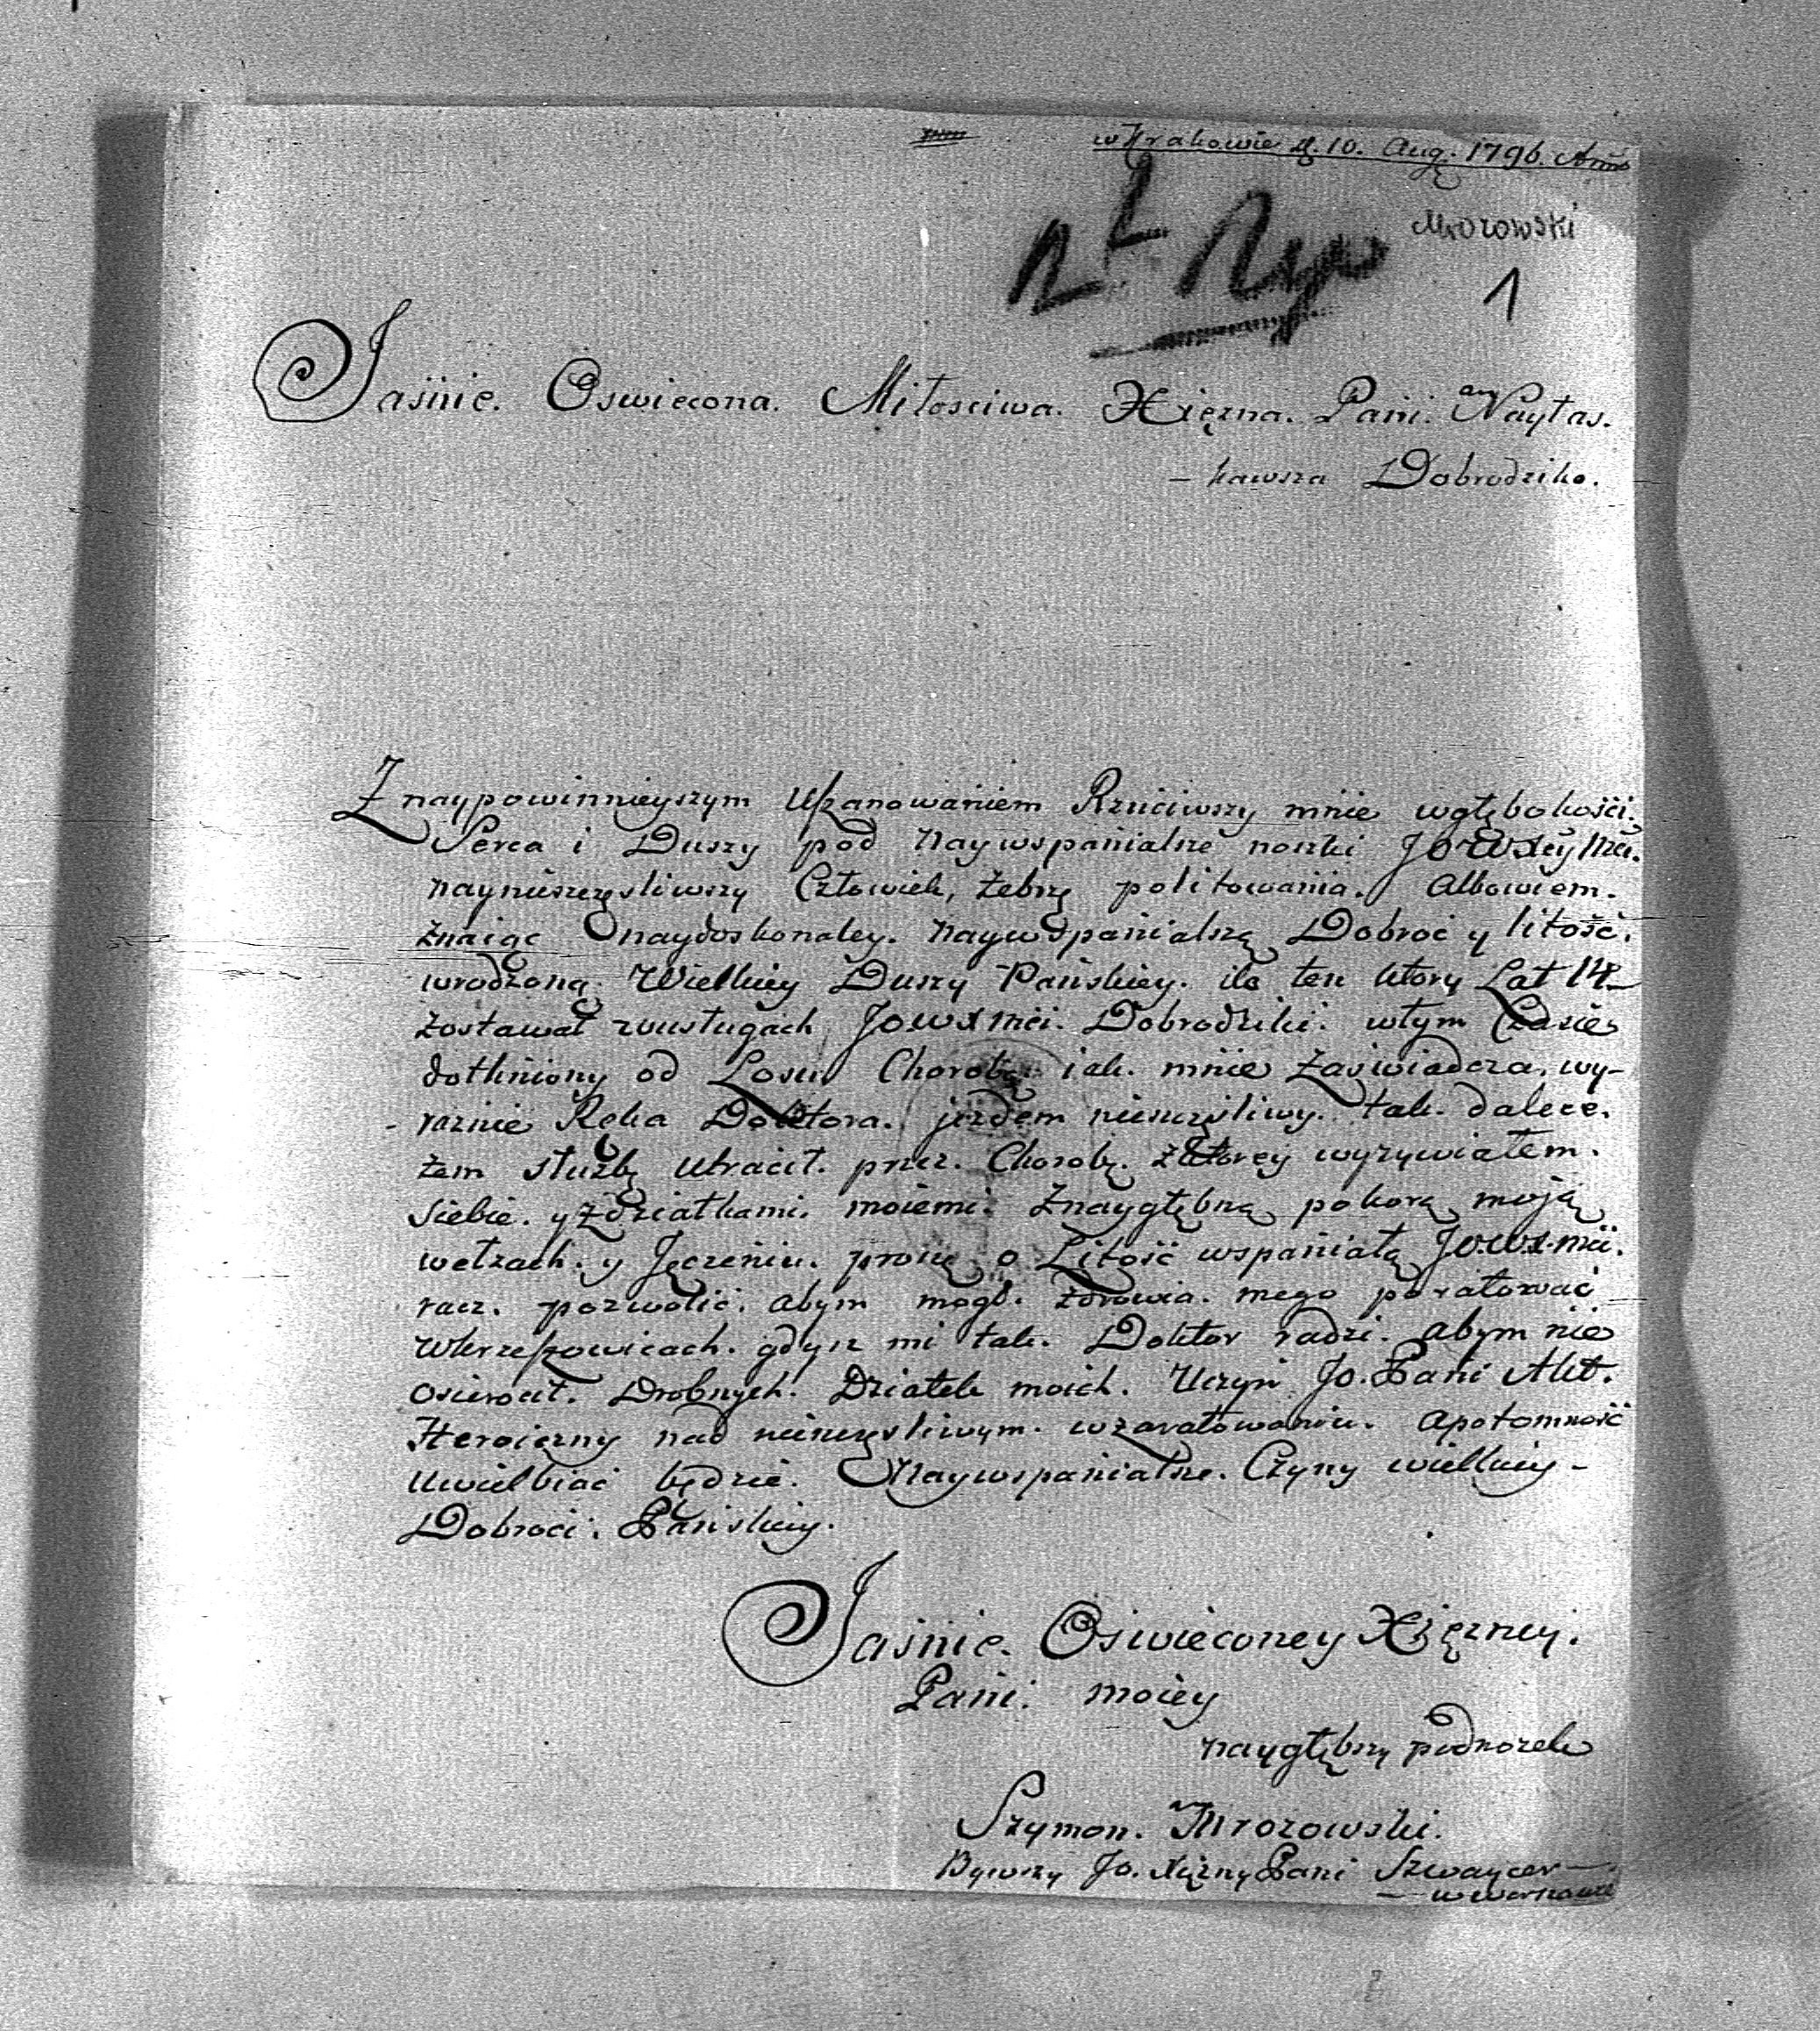 w Krakowie d. 10. Aug. 1796. Anno
Mrozowski
1
Jaśnie. Oswiecona. Miłosciwa. Xiężna. Pani. Nayłas.
- kawsza Dobrodziko.
Z naypowinnieyszym Uszanowaniem Rzuciwszy mnie wgłębokości.
Serca i Duszy pod Naywspanialsze noszki JOWXcy Mci.
naynieszczęsliwszy Człowiek, żebrzę politowania. Albowiem.
znaiąc naydoskonaley. Naywspanialszą Dobroć y litość.
wrodzoną Wielkiey Duszy Pańskiey. ile ten ktory Lat 14
zostawał wusługach JOWXMci. Dobrodziki. wtym Czasie
dotkniony od Losu Chorobą iak. mnie zaswiadcza. wy-
- raznie Ręka Doktora. jezdem nieszczęsliwy. tak. dalece.
żem służbę utracił. przez. Chorobę. zktorey wyzywiałem.
Siebie. y zdziatkami. moiemi. znaygłębszą pokorą moją
wełzach. y Jęczeniu. proszę o Litość wspaniałą JOWXMci.
racz. pozwolić. abym mogł. zdrowia. mego poratować
wkrzeszowicach. gdysz mi tak. Doktor radzi. abym nie
osierocił. Drobnych. Dziatek moich. Uczyń Jo. Pani Akt.
Heroiczny nad nieszczęsliwym. wzaratowaniu. apotomność
uwielbiać będzie. Naywspanialsze. Czyny wielkiey -
Dobroci. Pańskiey.
Jaśnie. Oswieconey Xiężney.
Pani. moiey
naygłębszy podnozek
Szymon. Mrozowski.
Bywszy Jo. Xiężny Pani Szwaycer -
- wwarszawie